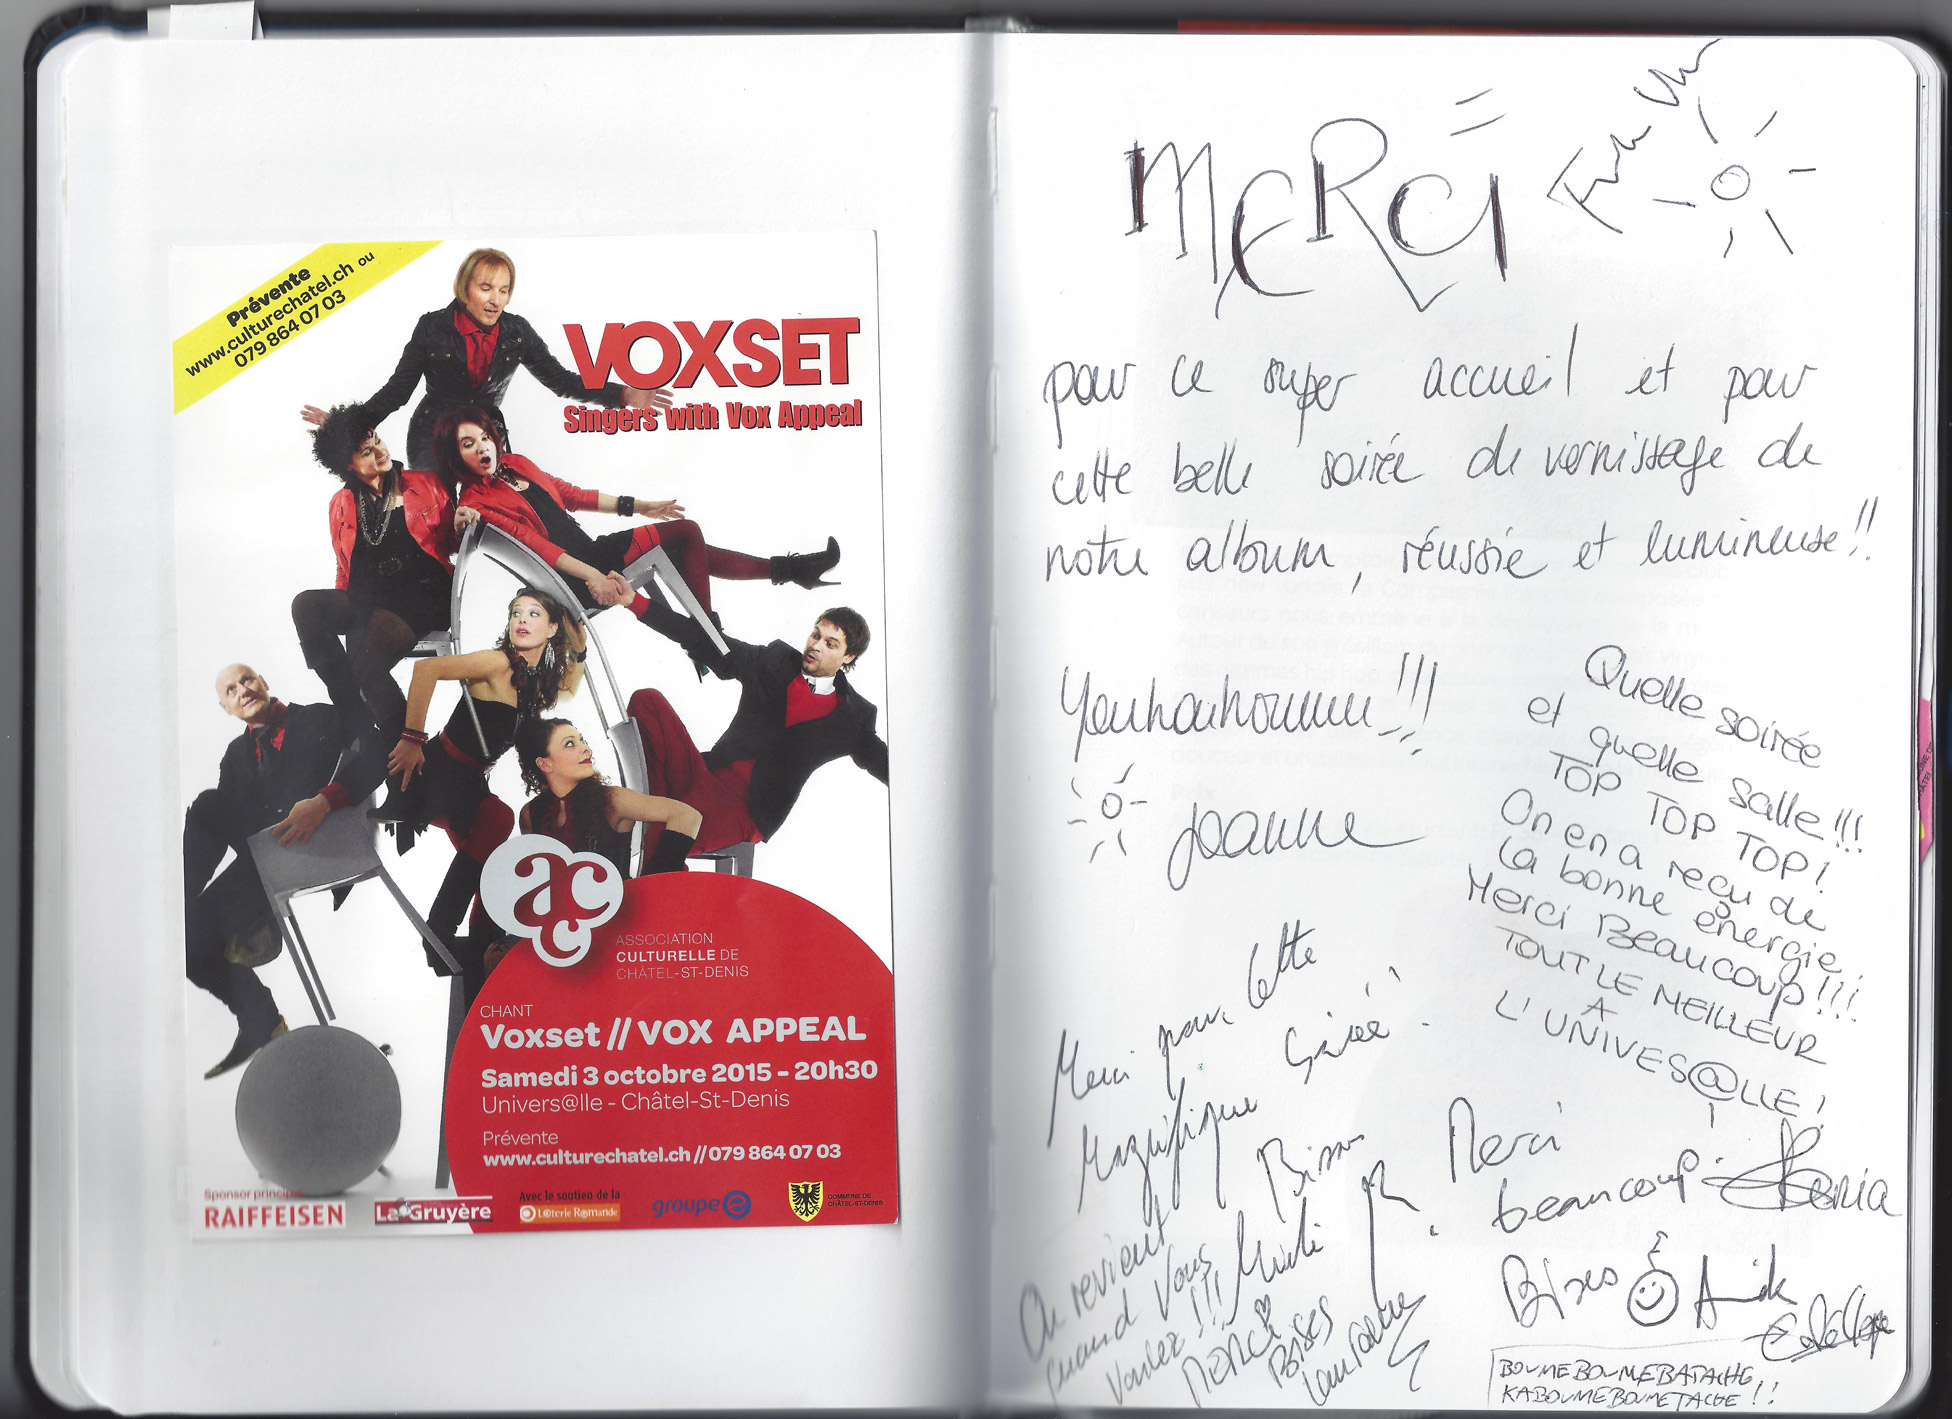 Prévente
www.culturechatel.ch ou
079 864 07 03
VOXSET
Singers with Vox Appeal
acc
ASSOCIATION
CULTURELLE DE
CHÂTEL-ST-DENIS
CHANT
Voxset // VOX APPEAL
Samedi 3 octobre 2015 - 20h30
Univers@lle - Châtel-St-Denis
Prévente
www.culturechatel.ch // 079 864 07 03
Sponsor principal
RAIFFEISEN
La Gruyère
Avec le soutien de la
Loterie Romande
groupe e
COMMUNE DE
CHÂTEL-ST-DENIS
MERCI
pour ce super accueil et pour
cette belle soirée de vernissage de
notre album, réussie et lumineuse!!
Youhouhouuuu!!!
Joanne
Quelle soirée
et quelle salle!!!
TOP TOP TOP!
On en a reçu de
la bonne énergie!
Merci Beaucoup!!!
TOUT LE MEILLEUR
A
L'UNIVES@LLE!
Merci pour cette
Magnifique Soirée!
Bisous
On revient
quand vous
voulez!!!
MERCI
BISES
Merci
beaucoup.
Bises
BOUMEBOUMEBATACHE
KABOUMEBOUMETACHE!!